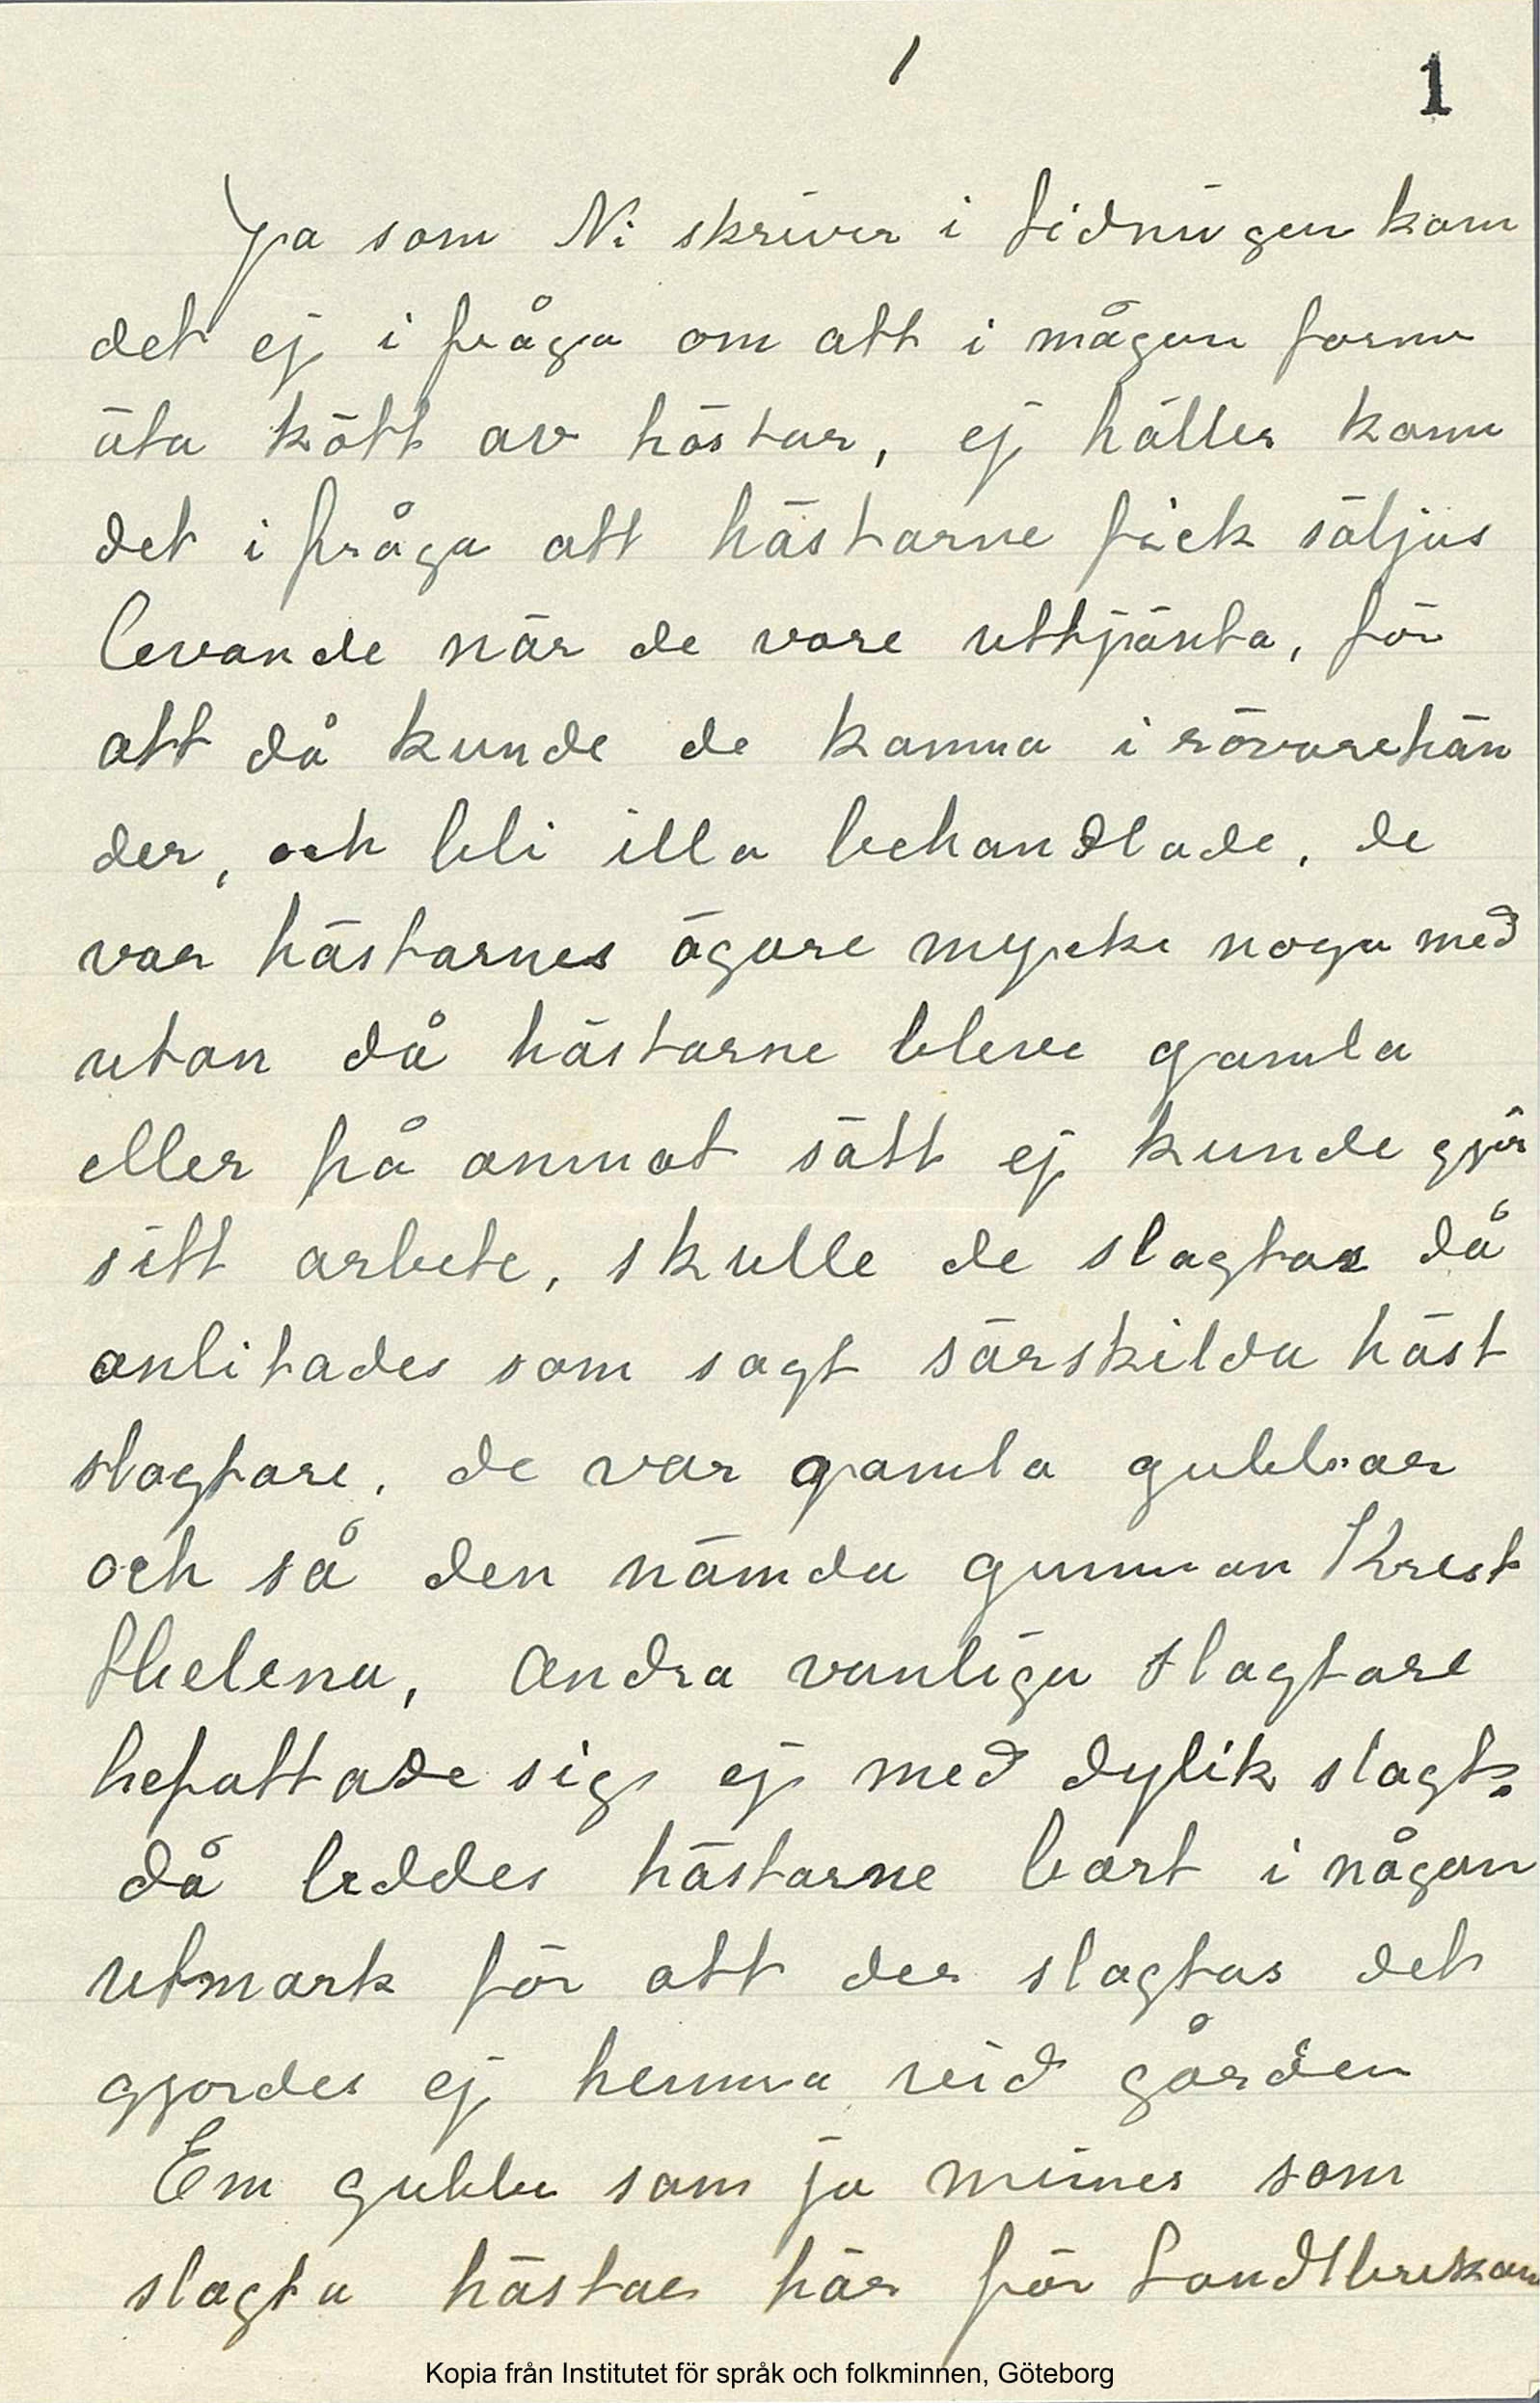 1
1
Ja som Ni skriver i tidningen kom
det ej i fråga om att i någon form
äta kött av hästar, ej häller kom
det i fråga att hästarne fick säljas
levande när de vore uttjänta, för
att då kunde de komma i rövarehän
der, och bli illa behandlade, de
var hästarnes ägare mycke noga med
utan då hästarne bleve gamla
eller på annat sätt ej kunde gjör
sitt arbete, skulle de slagtas då
anlitades som sagt särskilda häst
slagtare, de var gamla gubbar
och så den nämda gumman Krest
Helena, andra vanliga slagtare
befattade sig ej med dylik slagt.
då leddes hästarne bort i någon
utmark för att der slagtas det
gjordes ej hemma vid gården
En gubbe som ja minnes som
slagta hästar här för
Kopia från Institutet för språk och folkminnen, Göteborg